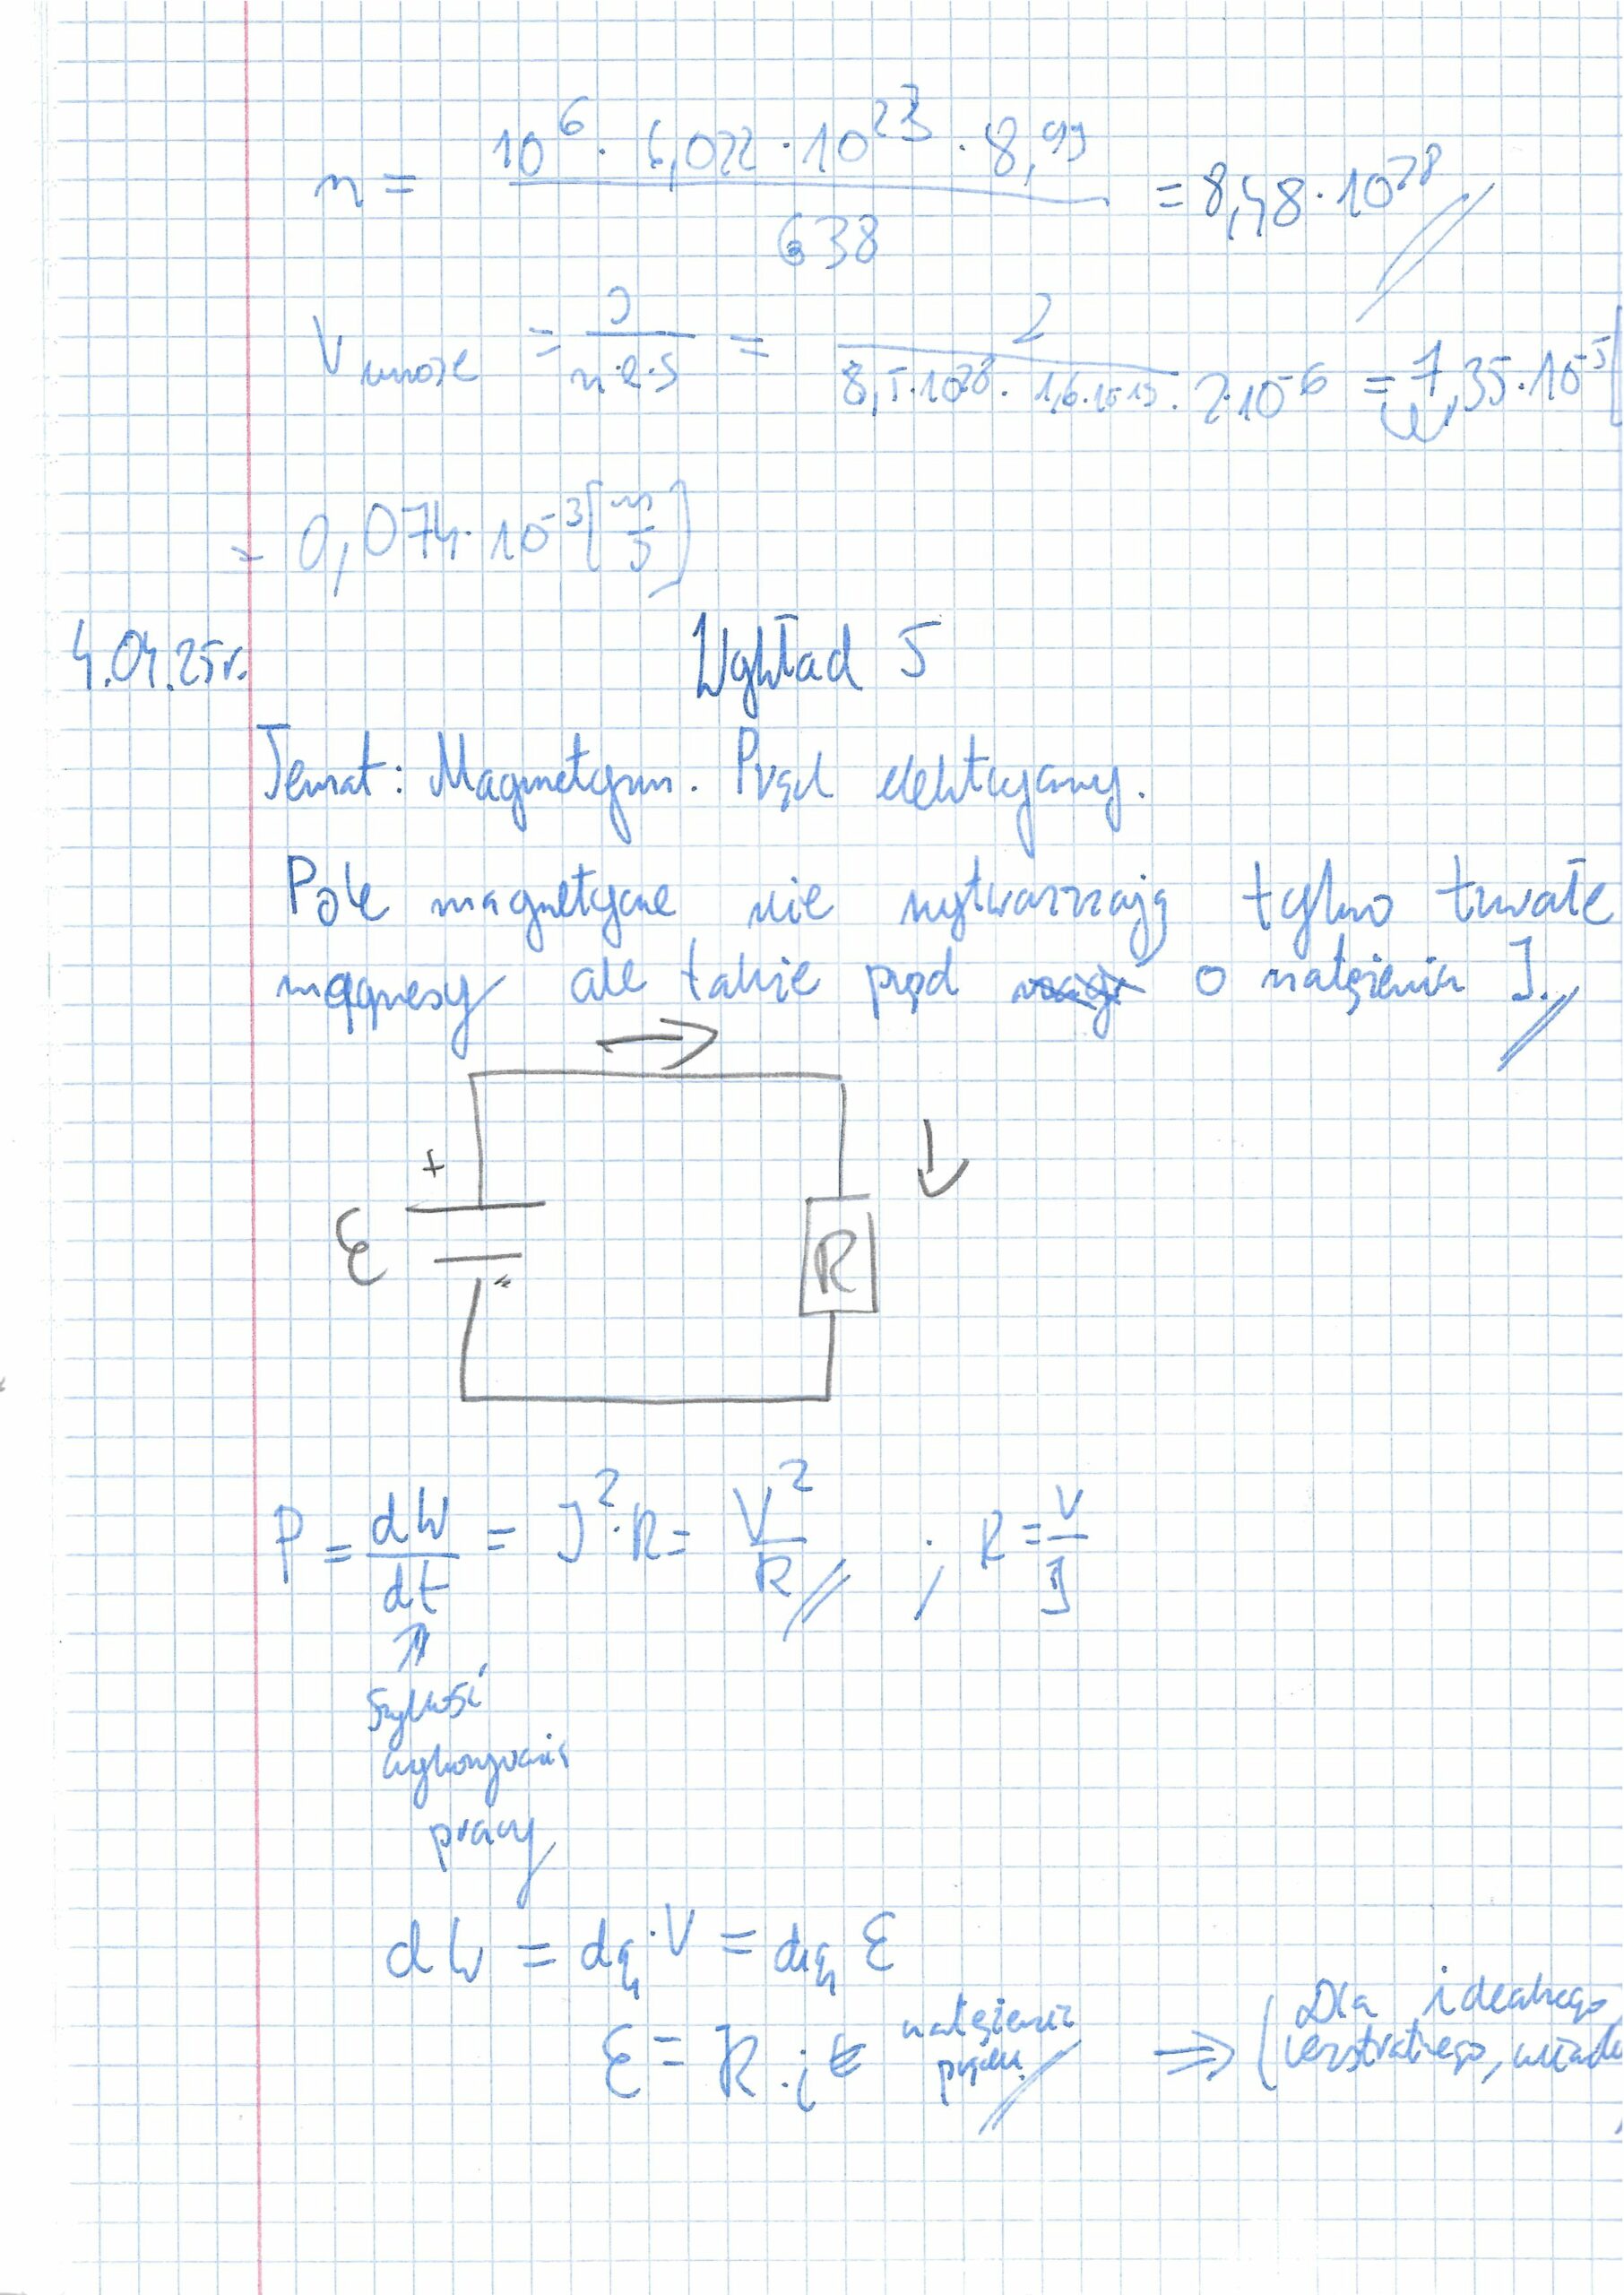 n = 10^6 · 6,022 · 10^23 · 8,99 / 638 = 8,48 · 10^28
V unosze = J / n·e·s = 2 / 8,5·10^28 · 1,6·10^-19 · 2·10^-6 = 7,35·10^-5 [
= 0,074 · 10^-3 [m/s]
4.04.25r. Wykład 5
Temat: Magnetyzm. Prąd elektryczny.
Pole magnetyczne nie wytwarzzają tylko trwałe
magnesy ale także prąd o natężeniu J.
+
ε R
-
P = dW/dt = J^2 · R = V^2/R ; R = V/J
↑
szybkość
wykonywania
pracy
dW = dq · V = dq ε
ε = R · i ← natężenie prądu ⇒ (Dla idealnego,
bezstratnego, układu